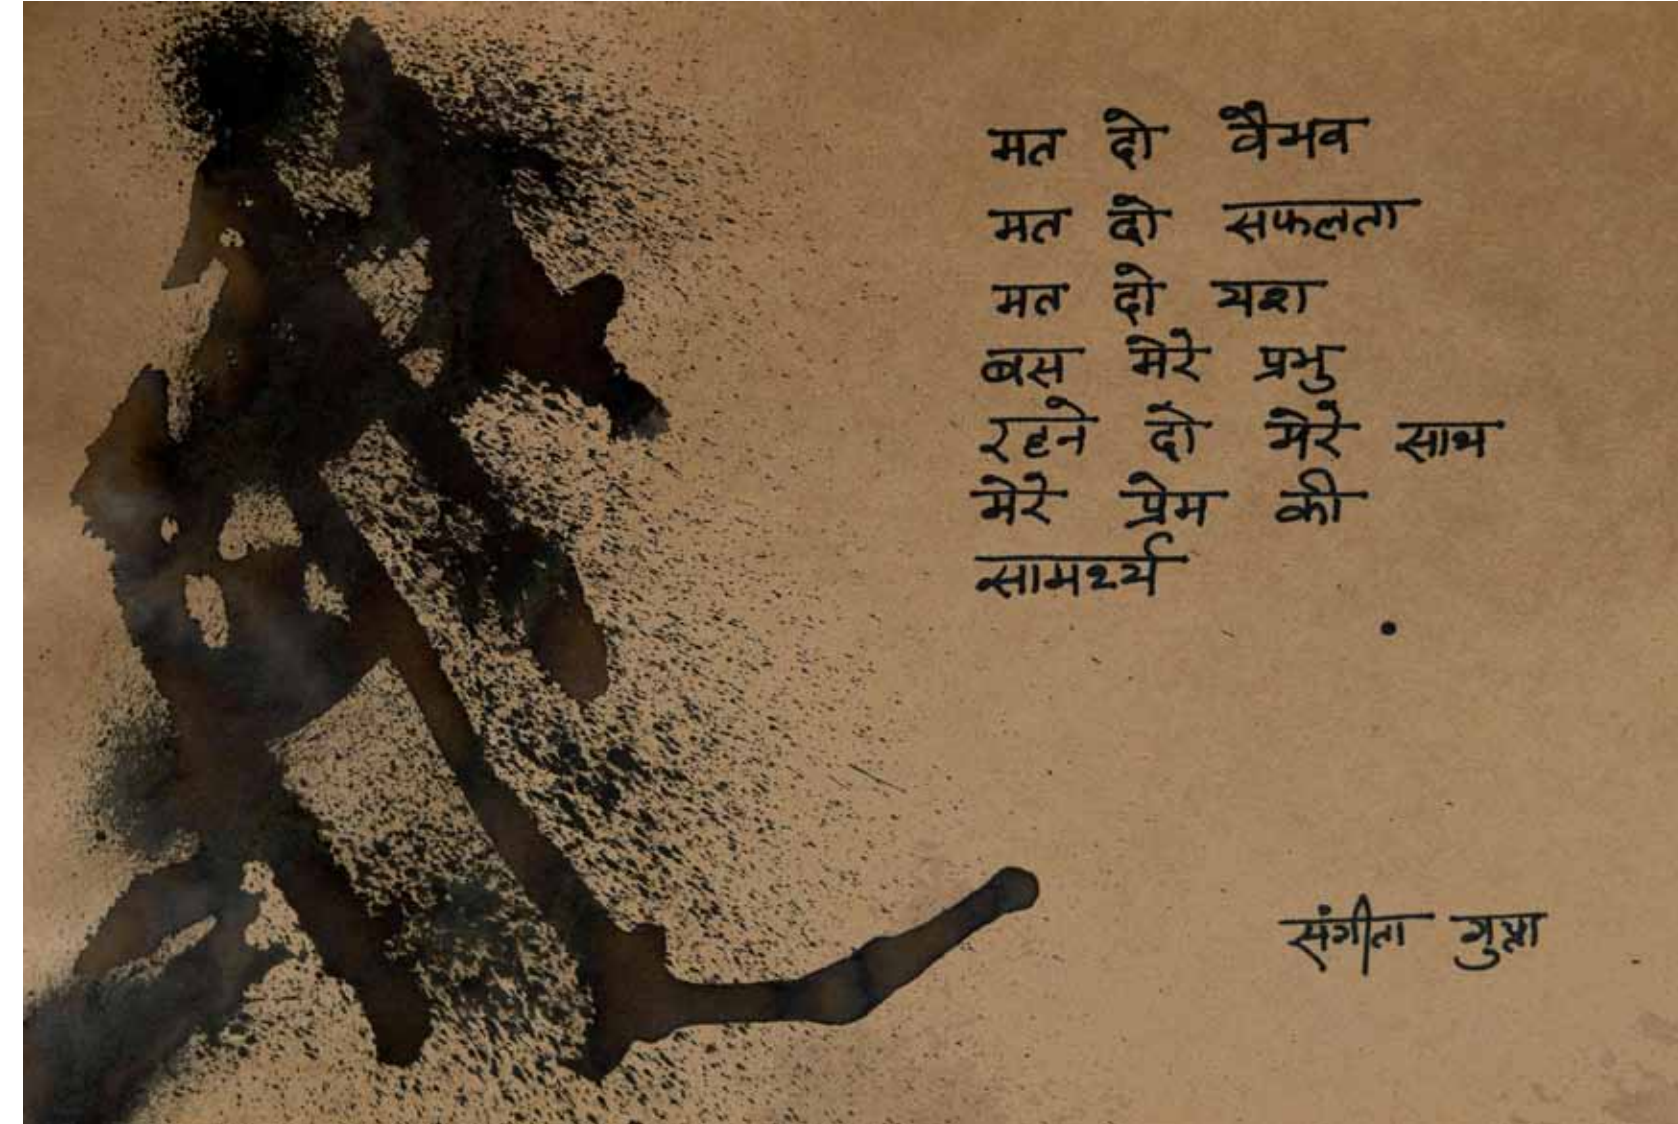 मत दो वैभव
मत दो सफलता
मत दो यश
बस मेरे प्रभु
रहने दो मेरे साथ
मेरे प्रेम की
सामर्थ्य
संगीता गुप्ता